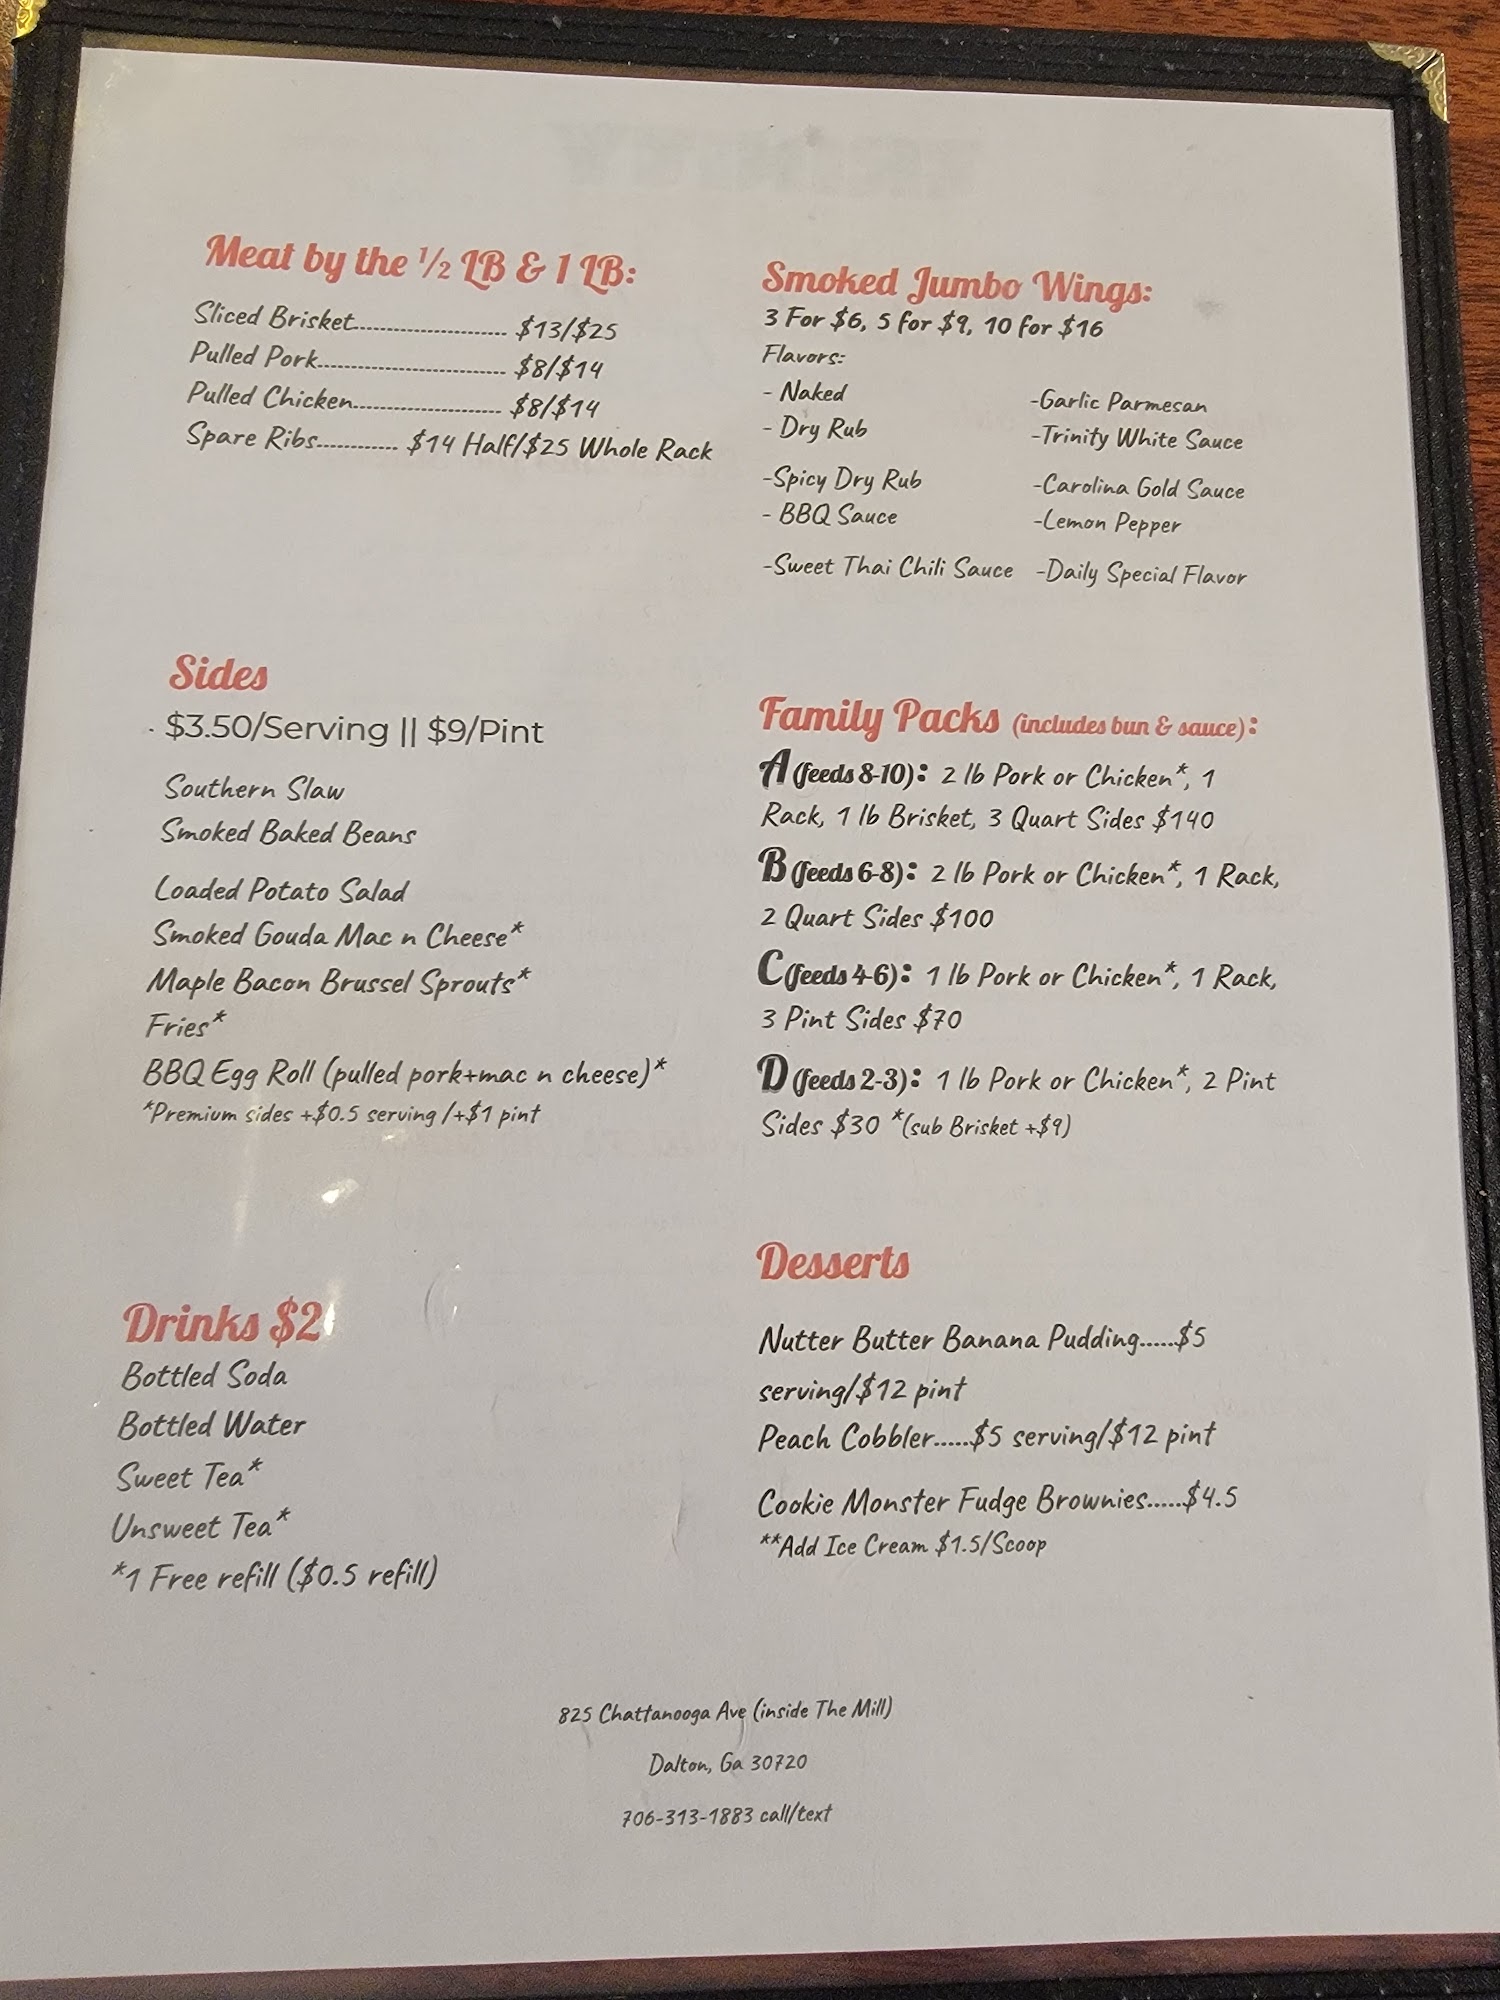 Meat by the ½ LB & 1 LB:
Sliced Brisket........................... $13/$25
Pulled Pork................................. $8/$14
Pulled Chicken.......................... $8/$14
Spare Ribs............. $14 Half/$25 Whole Rack
Smoked Jumbo Wings:
3 For $6, 5 for $9, 10 for $16
Flavors:
- Naked
- Dry Rub
-Spicy Dry Rub
- BBQ Sauce
-Sweet Thai Chili Sauce
-Garlic Parmesan
-Trinity White Sauce
-Carolina Gold Sauce
-Lemon Pepper
-Daily Special Flavor
Sides
· $3.50/Serving || $9/Pint
Southern Slaw
Smoked Baked Beans
Loaded Potato Salad
Smoked Gouda Mac n Cheese*
Maple Bacon Brussel Sprouts*
Fries*
BBQ Egg Roll (pulled pork+mac n cheese)*
*Premium sides +$0.5 serving /+$1 pint
Family Packs (includes bun & sauce):
A (feeds 8-10): 2 lb Pork or Chicken*, 1
Rack, 1 lb Brisket, 3 Quart Sides $140
B (feeds 6-8): 2 lb Pork or Chicken*, 1 Rack,
2 Quart Sides $100
C (feeds 4-6): 1 lb Pork or Chicken*, 1 Rack,
3 Pint Sides $70
D (feeds 2-3): 1 lb Pork or Chicken*, 2 Pint
Sides $30 *(sub Brisket +$9)
Drinks $2
Bottled Soda
Bottled Water
Sweet Tea*
Unsweet Tea*
*1 Free refill ($0.5 refill)
Desserts
Nutter Butter Banana Pudding.....$5
serving/$12 pint
Peach Cobbler.....$5 serving/$12 pint
Cookie Monster Fudge Brownies.....$4.5
**Add Ice Cream $1.5/Scoop
825 Chattanooga Ave (inside The Mill)
Dalton, Ga 30720
706-313-1883 call/text